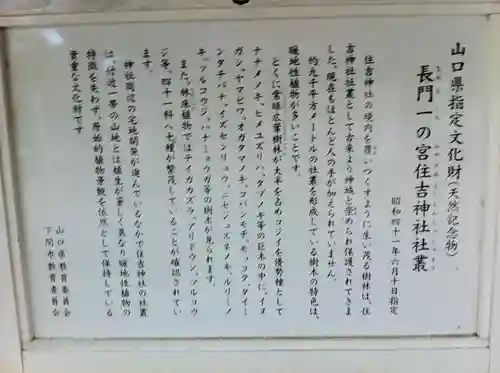 山口県指定文化財(天然記念物)
長門一の宮住吉神社社叢
昭和四十一年六月十日指定
住吉神社の境内を覆いつくすように生い茂る樹林は、住
吉神社社叢として古来より神域と崇められ保護されてきま
した。現在もほとんど人の手が加えられていません。
約九千平方メートルの社叢を形成している樹木の特色は、
暖地性植物が多いことです。
とくに常緑広葉樹林が大半を占めコジイを優勢種として
ナナメノキ、ヒメユズリハ、タブノキ等の巨木の中に、イヌ
ガシ、ヤマビワ、オガタマノキ、カンボモチ、モッコク、タイミ
ンタチバナ、イズセンリョウ、ニセジュズネノキ、ルリミノ
キ、ツルコウジ、ハナミョウガ等の樹木が見られます。
また、林床植物ではテイカカズラ、アリドウシ、ツルコウ
ジ等、四十一科八七種が繁茂していることが確認されてい
ます。
神社周辺の宅地開発が進んでいるなかで住吉神社の社叢
は、付近一帯の山地とは植生が著しく異なり暖地性植物の
特徴を失わず、原始的植物景観を依然として保持している
貴重な文化財です。
山口県教育委員会
下関市教育委員会